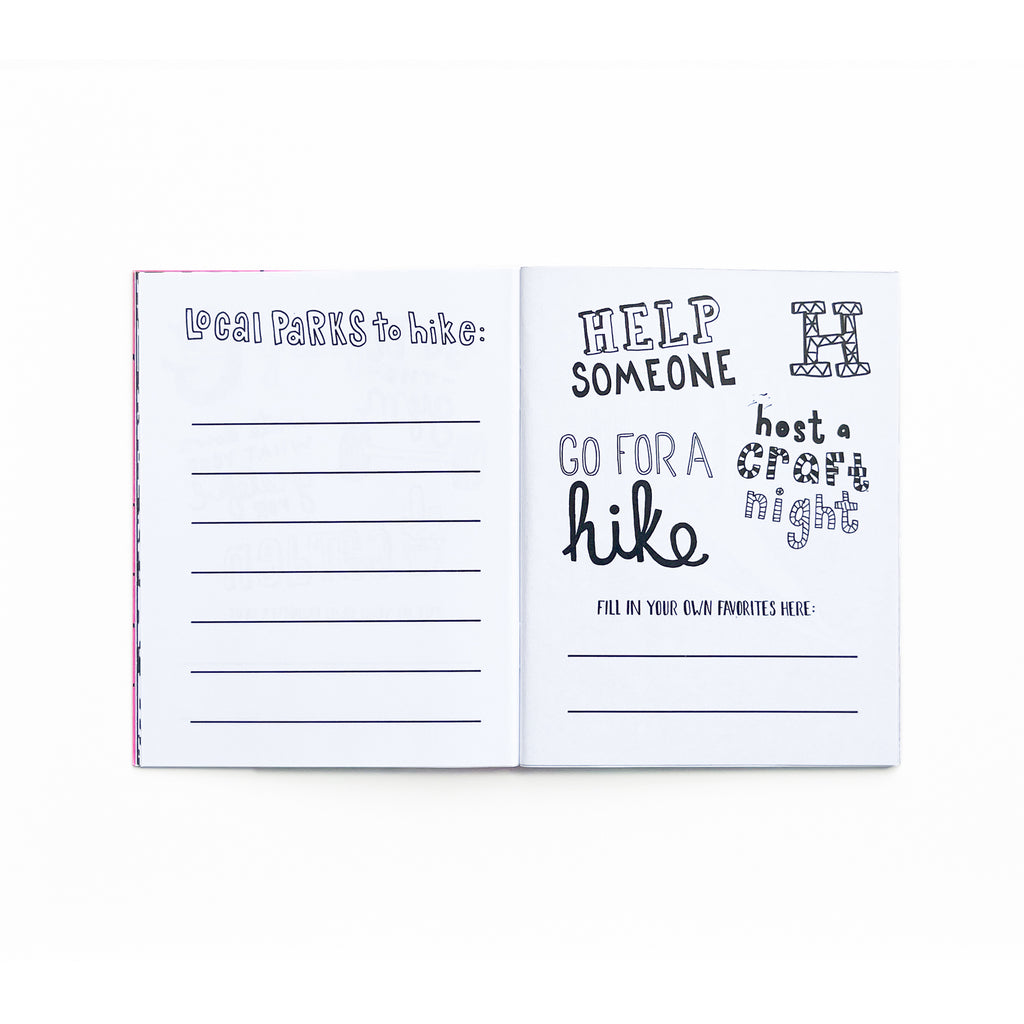 Local PARKS to hike:
HELP
SOMEONE
H
GO FOR A
hike
host a
craft
night
FILL IN YOUR OWN FAVORITES HERE: